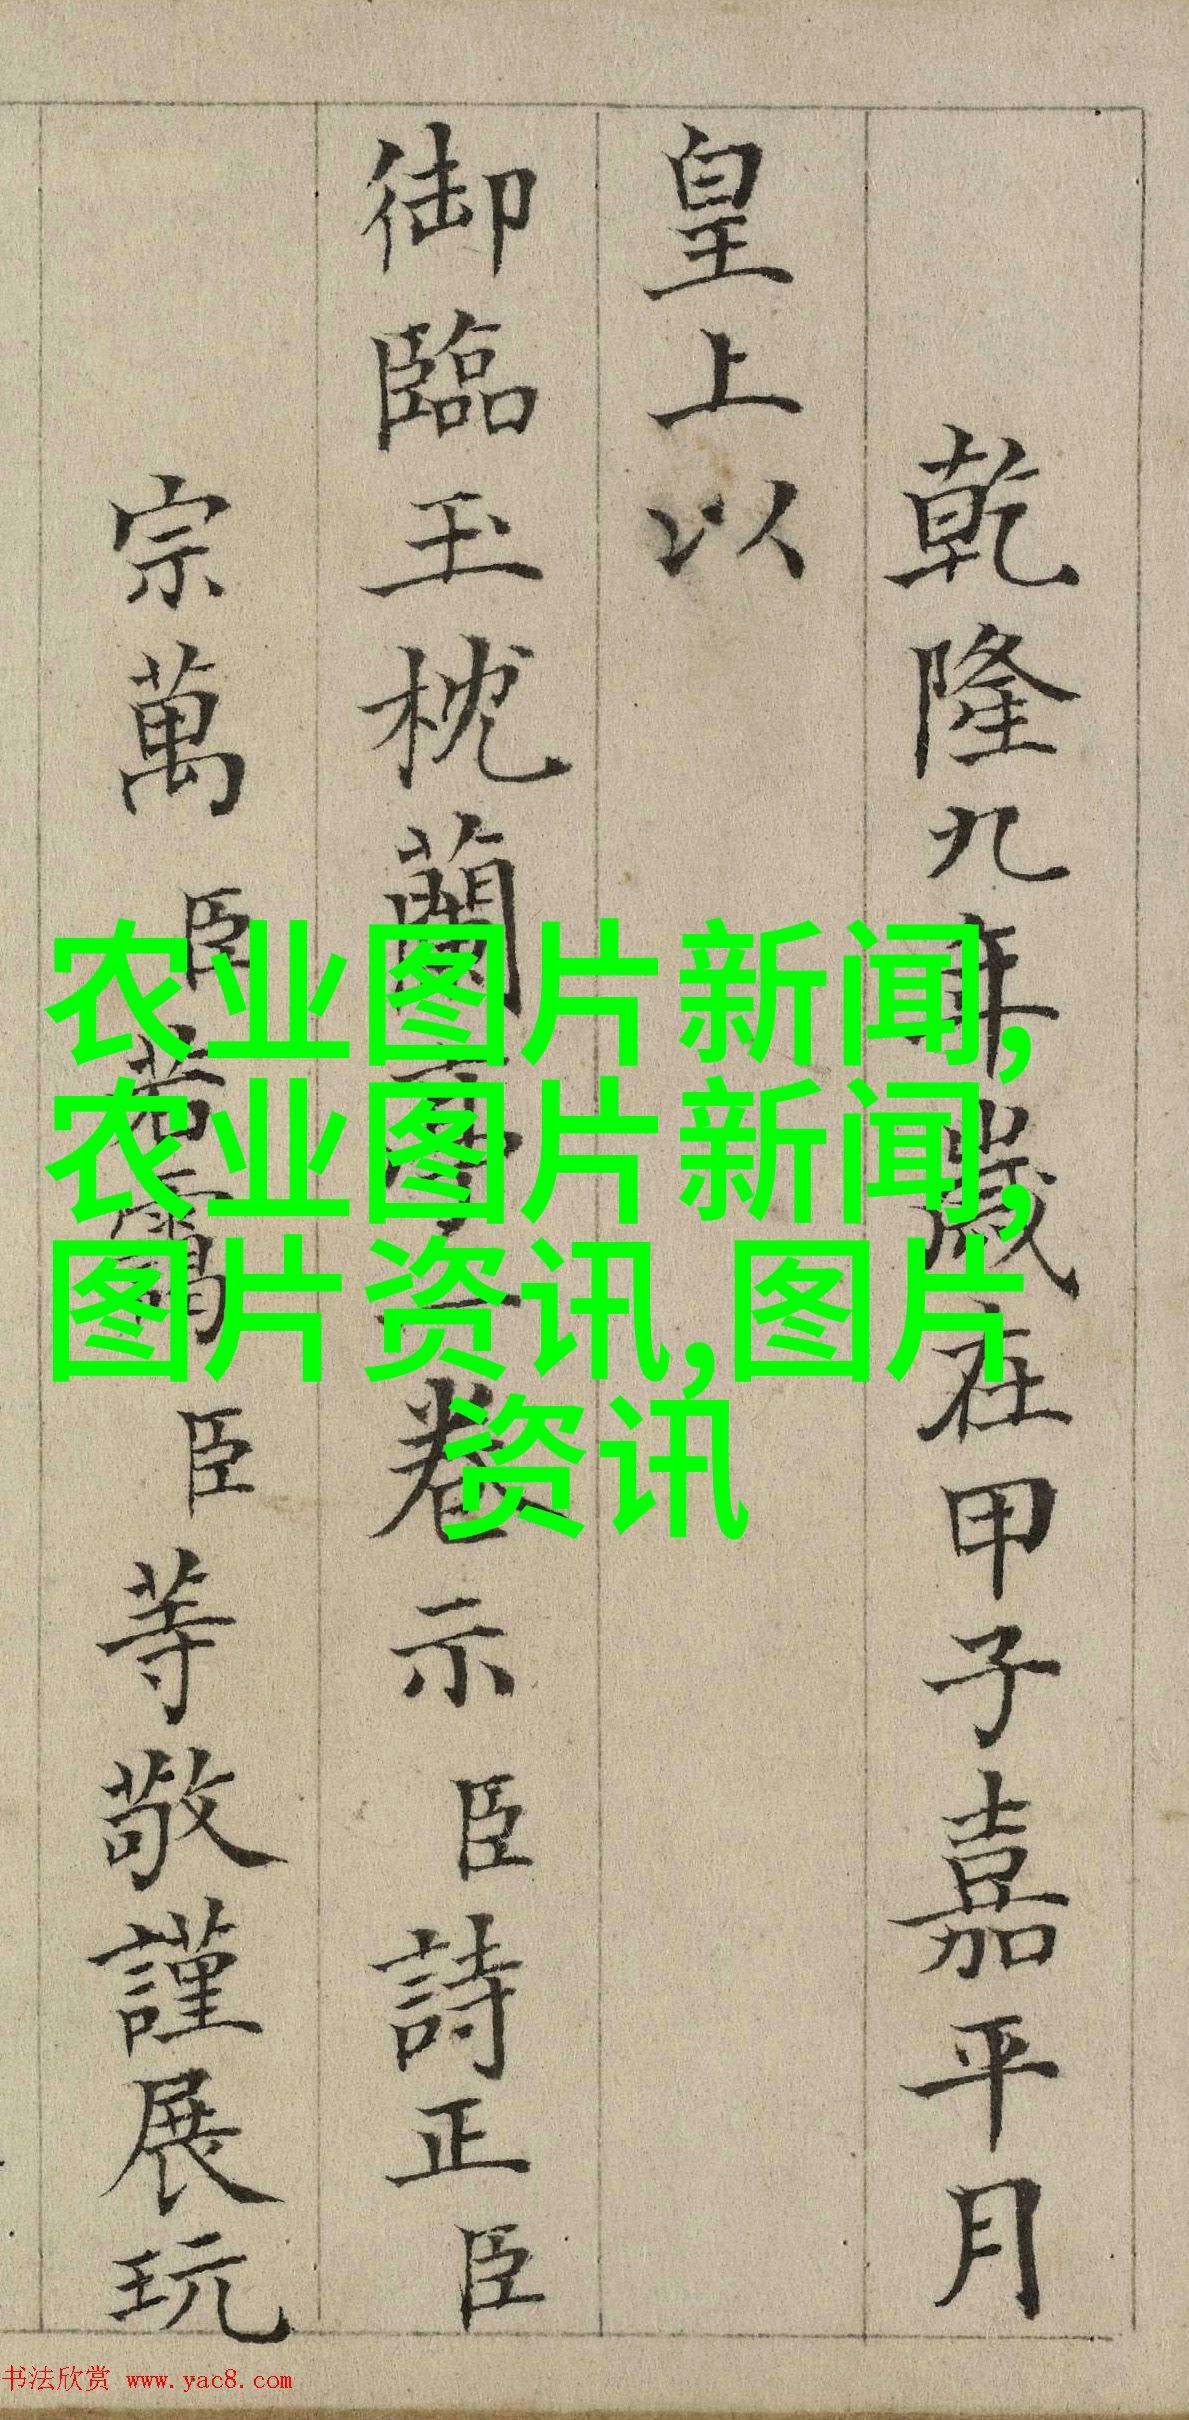 乾隆九年歲在甲子嘉平月
皇上以
御臨玉枕蘭亭一卷示臣詩正臣
宗萬臣若靄臣等敬謹展玩
农业图片新闻,
农业图片新闻,
图片资讯,图片
资讯
书法欣赏 www.yac8.com